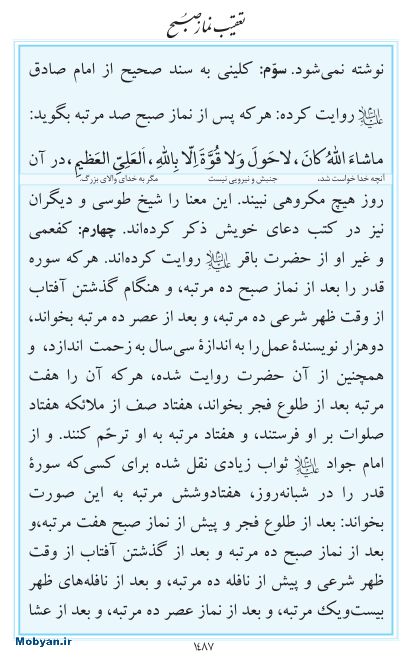 تعقیب نماز صبح
نوشته نمی‌شود. سوّم: کلینی به سند صحیح از امام صادق
علیه‌السلام روایت کرده: هرکه پس از نماز صبح صد مرتبه بگوید:
ماشاءَ اللهُ کانَ، لاحَولَ وَلا قُوَّةَ اِلّا بِاللهِ، اَلعَلِیِّ العَظیمِ، در آن
آنچه خدا خواست شد، جنبش و نیرویی نیست مگر به خدای والای بزرگ.
روز هیچ مکروهی نبیند. این معنا را شیخ طوسی و دیگران
نیز در کتب دعای خویش ذکر کرده‌اند. چهارم: کفعمی
و غیر او از حضرت باقر علیه‌السلام روایت کرده‌اند. هرکه سوره
قدر را بعد از نماز صبح ده مرتبه، و هنگام گذشتن آفتاب
از وقت ظهر شرعی ده مرتبه، و بعد از عصر ده مرتبه بخواند،
دوهزار نویسندهٔ عمل را به اندازهٔ سی‌سال به زحمت اندازد، و
همچنین از آن حضرت روایت شده، هرکه آن را هفت
مرتبه بعد از طلوع فجر بخواند، هفتاد صف از ملائکه هفتاد
صلوات بر او فرستند، و هفتاد مرتبه به او ترحّم کنند. و از
امام جواد علیه‌السلام ثواب زیادی نقل شده برای کسی‌که سورهٔ
قدر را در شبانه‌روز، هفتادوشش مرتبه به این صورت
بخواند: بعد از طلوع فجر و پیش از نماز صبح هفت مرتبه،و
بعد از نماز صبح ده مرتبه و بعد از گذشتن آفتاب از وقت
ظهر شرعی و پیش از نافله ده مرتبه، و بعد از نافله‌های ظهر
بیست‌ویک مرتبه، و بعد از نماز عصر ده مرتبه، و بعد از عشا
Mobyan.ir
۱۴۸۷